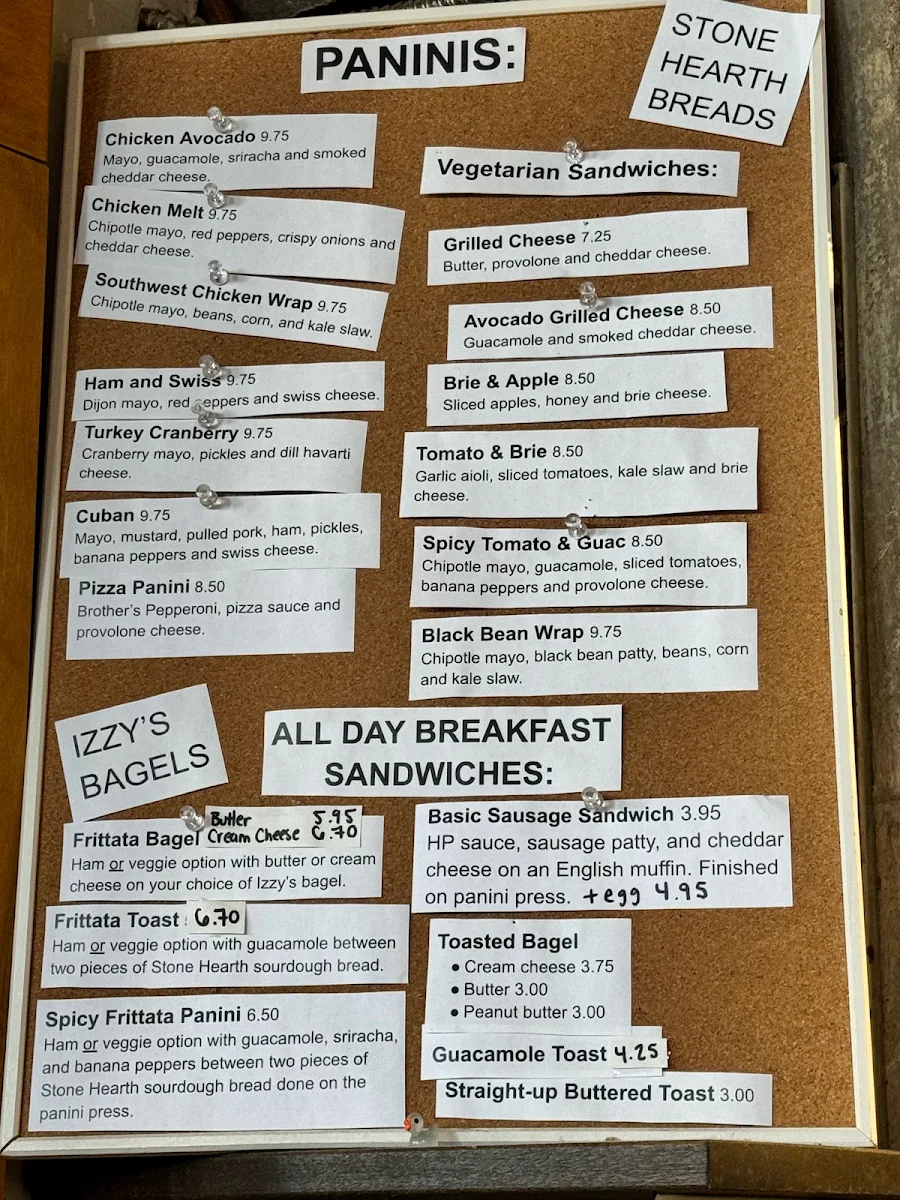 PANINIS:
STONE
HEARTH
BREADS
Chicken Avocado 9.75
Mayo, guacamole, sriracha and smoked
cheddar cheese.
Chicken Melt 9.75
Chipotle mayo, red peppers, crispy onions and
cheddar cheese.
Southwest Chicken Wrap 9.75
Chipotle mayo, beans, corn, and kale slaw.
Ham and Swiss 9.75
Dijon mayo, red peppers and swiss cheese.
Turkey Cranberry 9.75
Cranberry mayo, pickles and dill havarti
cheese.
Cuban 9.75
Mayo, mustard, pulled pork, ham, pickles,
banana peppers and swiss cheese.
Pizza Panini 8.50
Brother's Pepperoni, pizza sauce and
provolone cheese.
Vegetarian Sandwiches:
Grilled Cheese 7.25
Butter, provolone and cheddar cheese.
Avocado Grilled Cheese 8.50
Guacamole and smoked cheddar cheese.
Brie & Apple 8.50
Sliced apples, honey and brie cheese.
Tomato & Brie 8.50
Garlic aioli, sliced tomatoes, kale slaw and brie
cheese.
Spicy Tomato & Guac 8.50
Chipotle mayo, guacamole, sliced tomatoes,
banana peppers and provolone cheese.
Black Bean Wrap 9.75
Chipotle mayo, black bean patty, beans, corn
and kale slaw.
IZZY'S
BAGELS
ALL DAY BREAKFAST
SANDWICHES:
Butter 5.95
Frittata Bagel Cream Cheese 6.70
Ham or veggie option with butter or cream
cheese on your choice of Izzy's bagel.
Frittata Toast 6.70
Ham or veggie option with guacamole between
two pieces of Stone Hearth sourdough bread.
Spicy Frittata Panini 6.50
Ham or veggie option with guacamole, sriracha,
and banana peppers between two pieces of
Stone Hearth sourdough bread done on the
panini press.
Basic Sausage Sandwich 3.95
HP sauce, sausage patty, and cheddar
cheese on an English muffin. Finished
on panini press. +egg 4.95
Toasted Bagel
• Cream cheese 3.75
• Butter 3.00
• Peanut butter 3.00
Guacamole Toast 4.25
Straight-up Buttered Toast 3.00